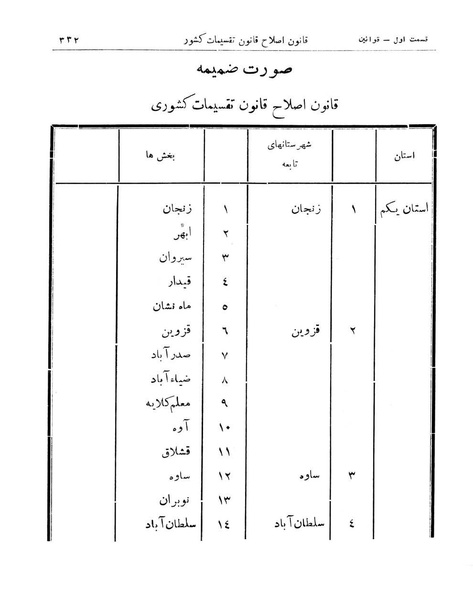 قسمت اول – قوانین قانون اصلاح قانون تقسیمات کشور ۳۳۲
صورت ضمیمه
قانون اصلاح قانون تقسیمات کشوری
استان شهرستانهای تابعه بخش ها
استان یکم ۱ زنجان ۱ زنجان
۲ ابهر
۳ سیروان
٤ قیدار
۵ ماه نشان
۲ قزوین ۶ قزوین
۷ صدرآباد
۸ ضیاءآباد
۹ معلم کلایه
۱۰ آوه
۱۱ قشلاق
۳ ساوه ۱۲ ساوه
۱۳ نوبران
٤ سلطان آباد ۱٤ سلطان آباد